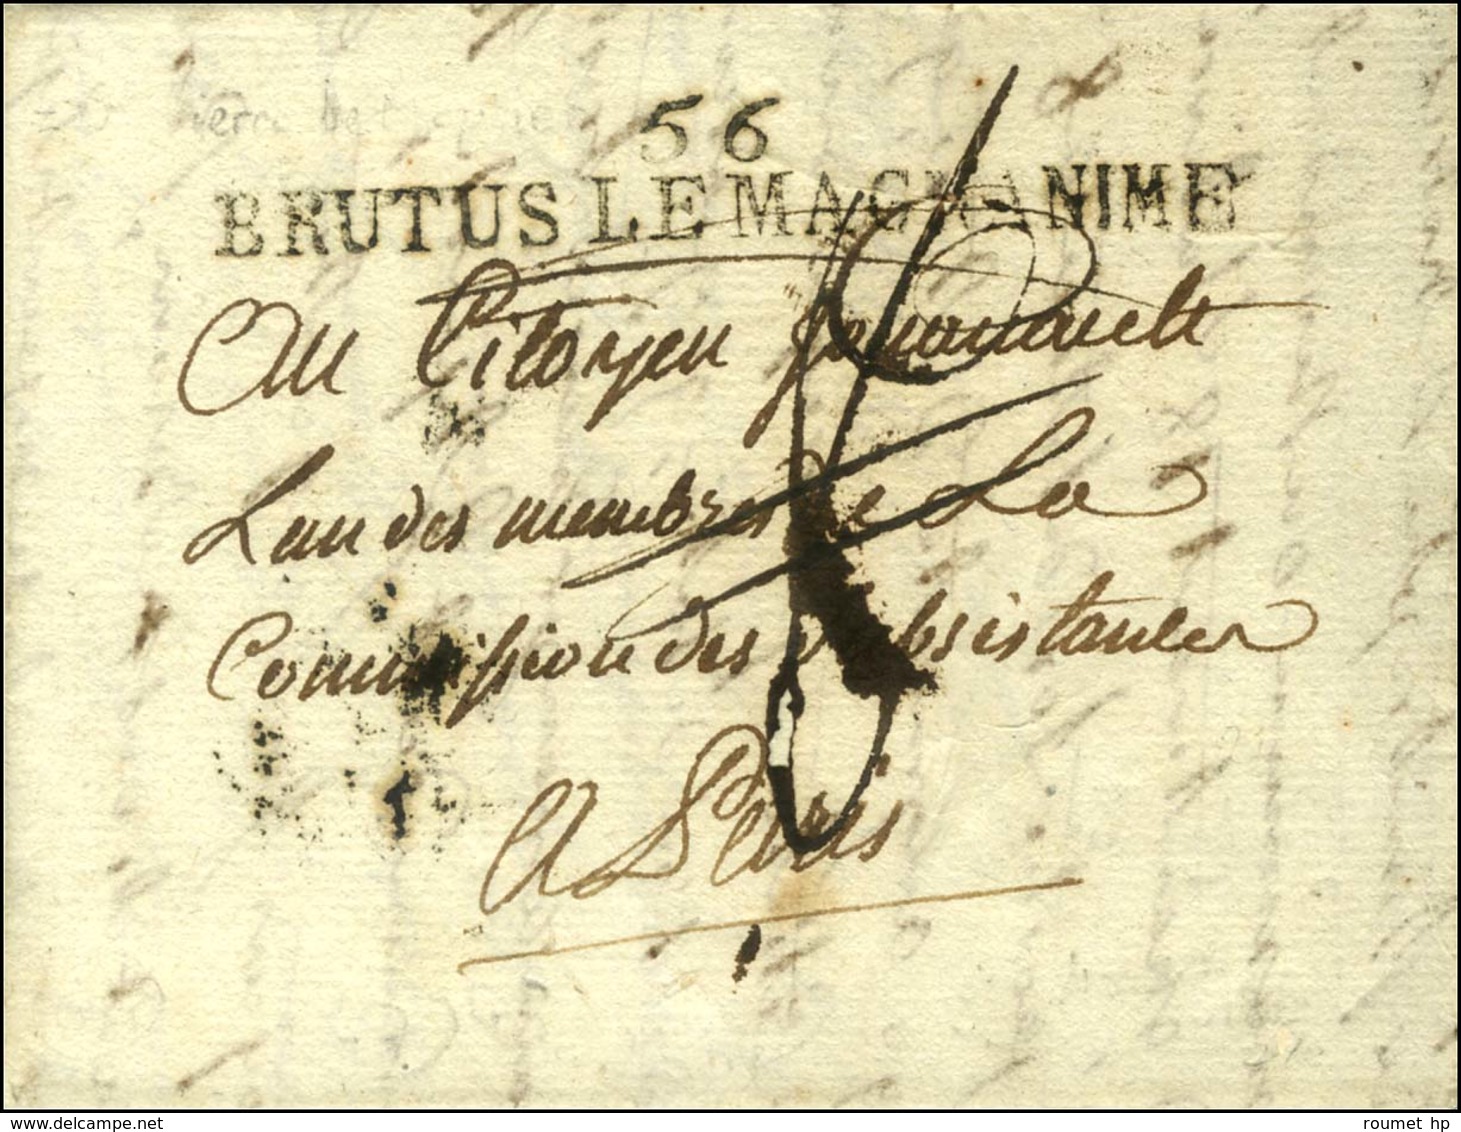 56
BRUTUS LE MAGNANIME
Au Citoyen
L'un des membres de La
Commission des subsistances
A Paris
roumet hp